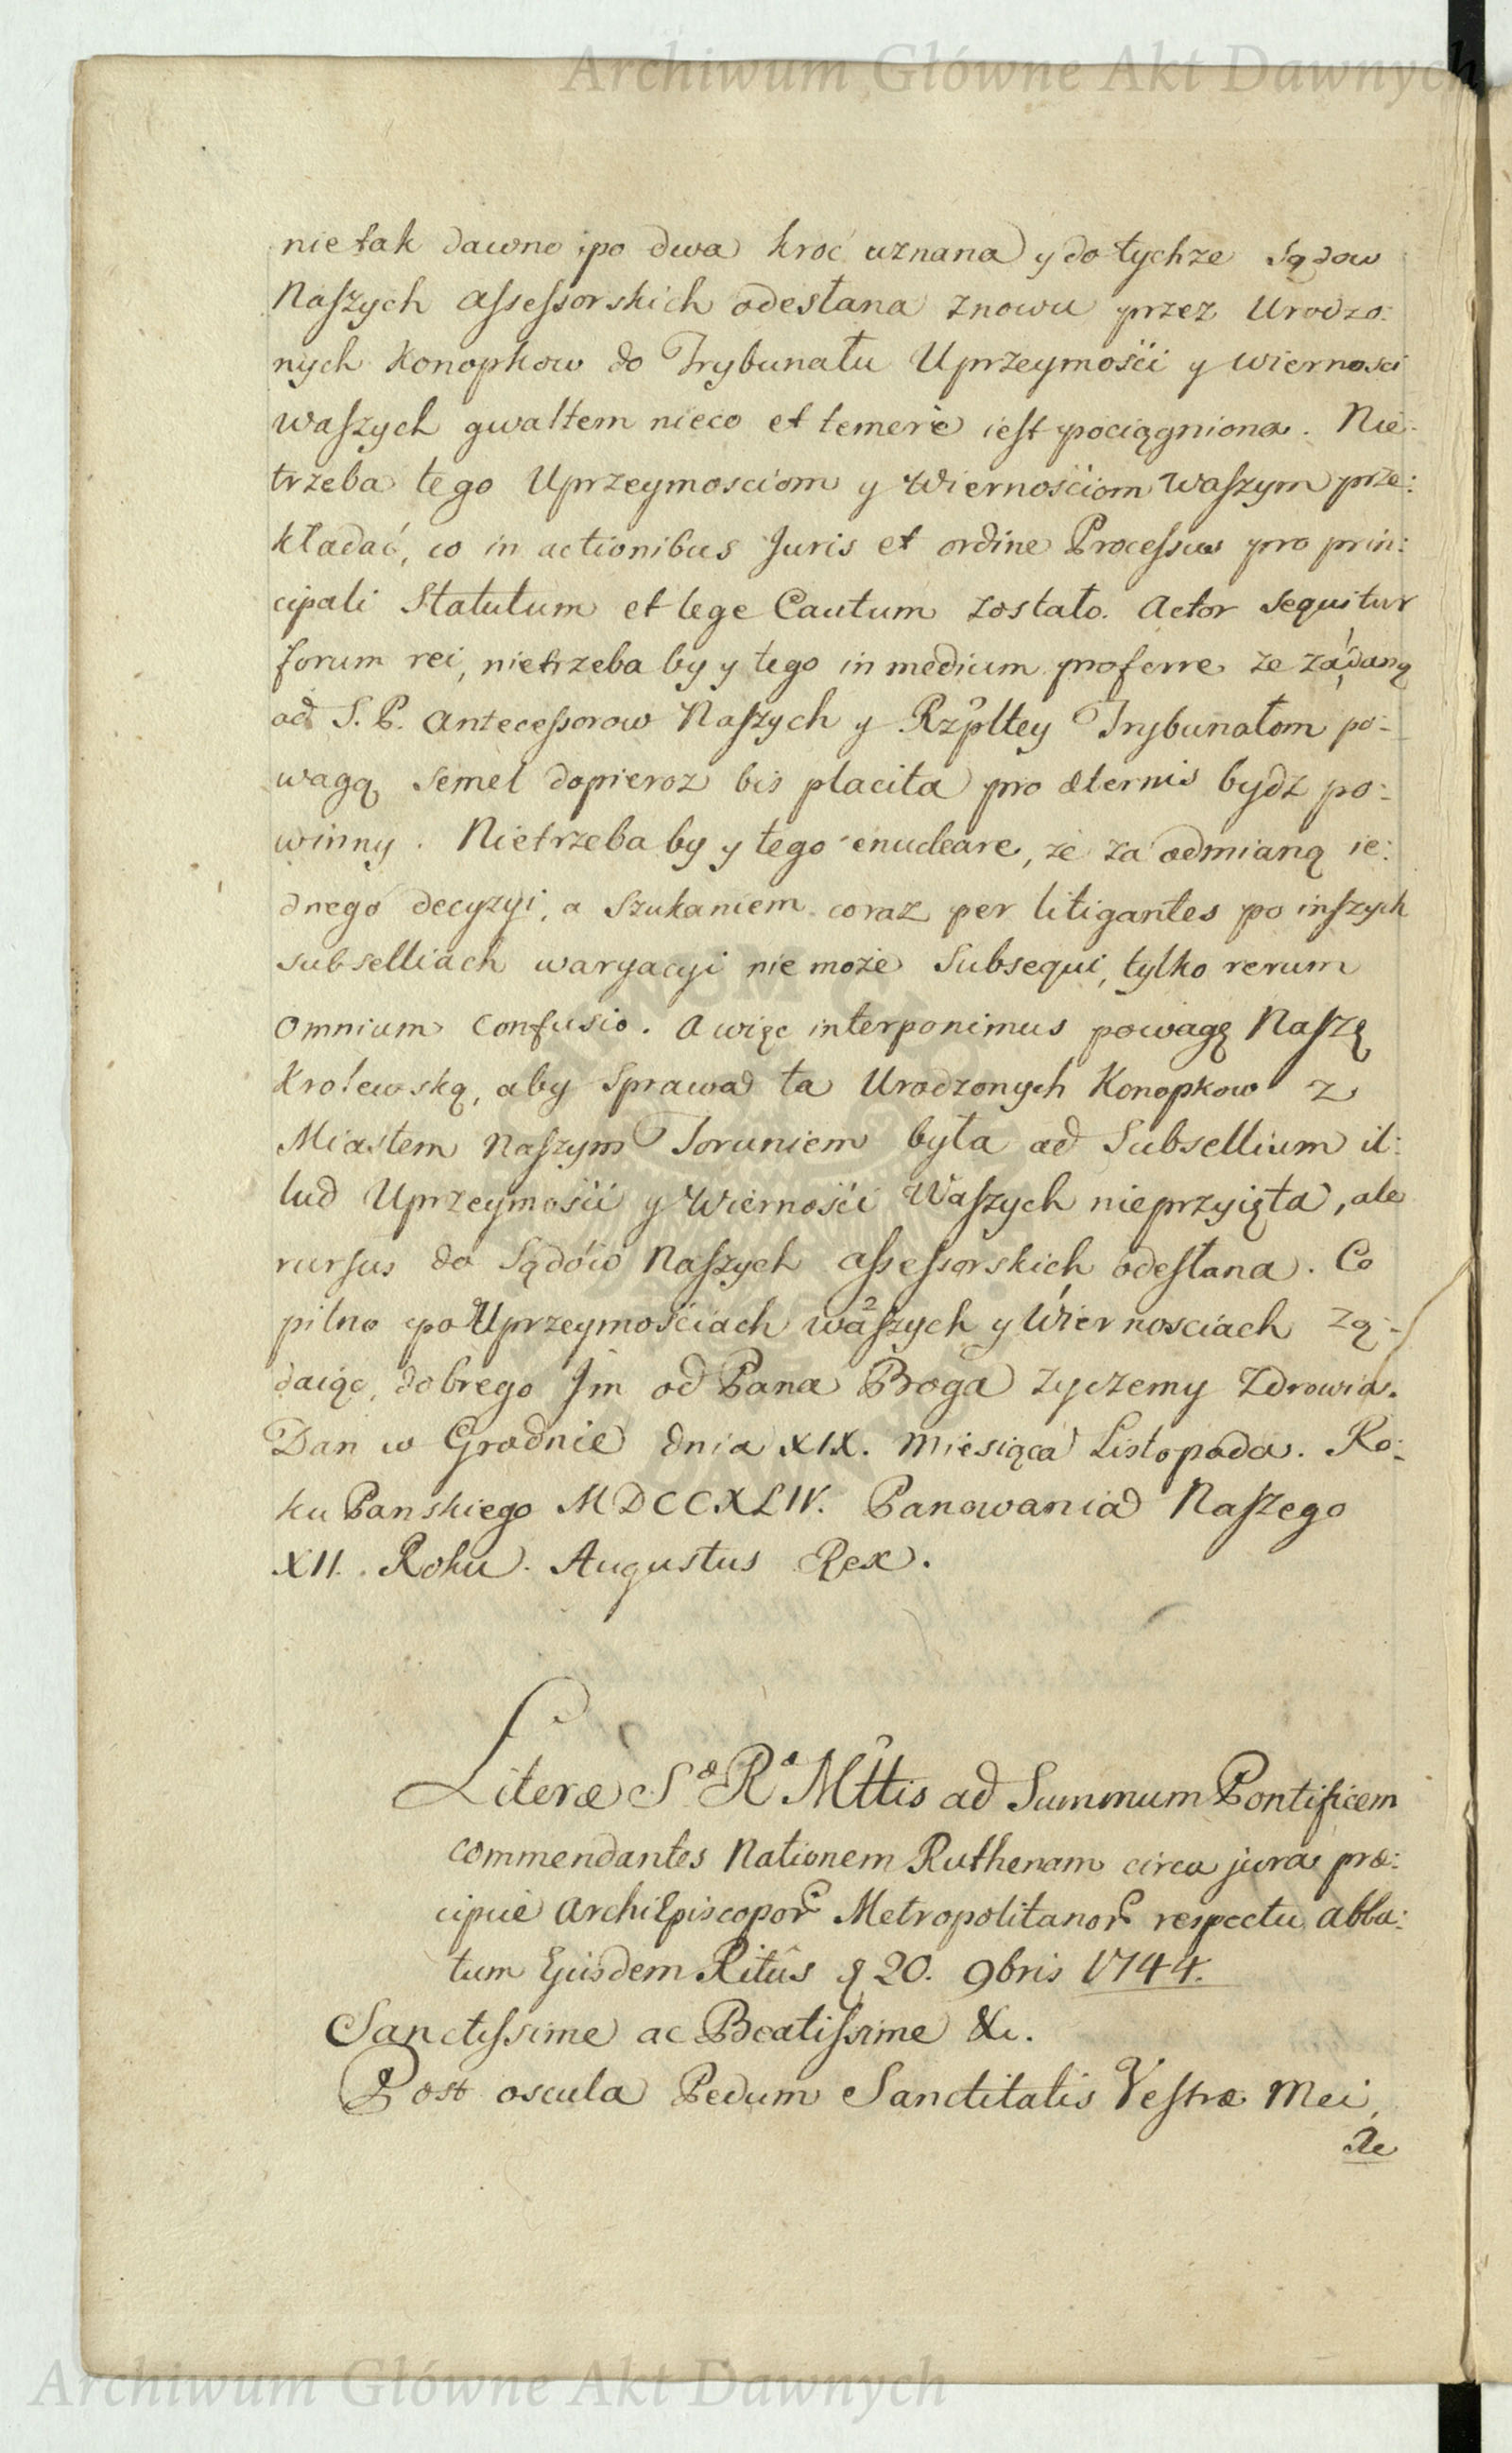 Archiwum Główne Akt Dawnych
nie tak dawno ipo dwa kroć uznana y do tychze Sądow
Naſzych aſseſsorskich odesłana znowu przez Urodzo:
nych Konopkow do Trybunału Uprzeymości y wiernosci
waſzych gwałtem nieco et temerè ieſt pociągniona. Nie-
trzeba tego Uprzeymosciom y Wiernościom Waſzym prze:
kładać, co in actionibus Juris et ordine Proceſsus pro prin:
cipali Statutum et lege Cautum zostało. Actor Sequitur
forum rei, nietrzeba by y tego in medium proferre ze zá daną
od S. P. Anteceſsorow Naſzych y Rzpltey Trybunałom po-
wagą Semel dopieroz bis placita pro æternis bydz po-
winny. Nietrzeba by y tego enucleare, że za odmianą ie:
dnego decyzyi, a szukaniem coraz per litigantes po inſzych
subselliach waryacyi nie może Subsequi, tylko rerum
Omnium Confusio. A więc interponimus powagę Naſzę
Krolewską, aby Sprawa ta Urodzonych Konopkow z
Miastem Naſzym Toruniem była ad Subsellium il:
lud Uprzeymości y Wierności Waſzych nieprzyięta, ale
rurſus do Sądów Naſzych aſseſsorskich odeſłana. Co
pilno po Uprzeymościach waſzych y Wiernosciach zą-
daiąc, dobrego Im od Pana Boga zyczemy Zdrowia.
Dan w Grodnie dnia XIX. Miesiąca Listopada. Ro:
ku Panskiego MDCCXLIV. Panowania Naſzego
XII. Roku. Augustus Rex.
Literæ Sæ Ræ Mttis ad Summum Pontificem
commendantes Nationem Ruthenam circa jura præ:
cipuè ArchiEpiscopor Metropolitanor respectu Abba:
tum Ejusdem Ritûs d 20. 9bris 1744.
Sanctiſsime ac Beatiſsime &c.
Post oscula Pedum Sanctitatis Veſtræ Mei,
Re
Archiwum Główne Akt Dawnych